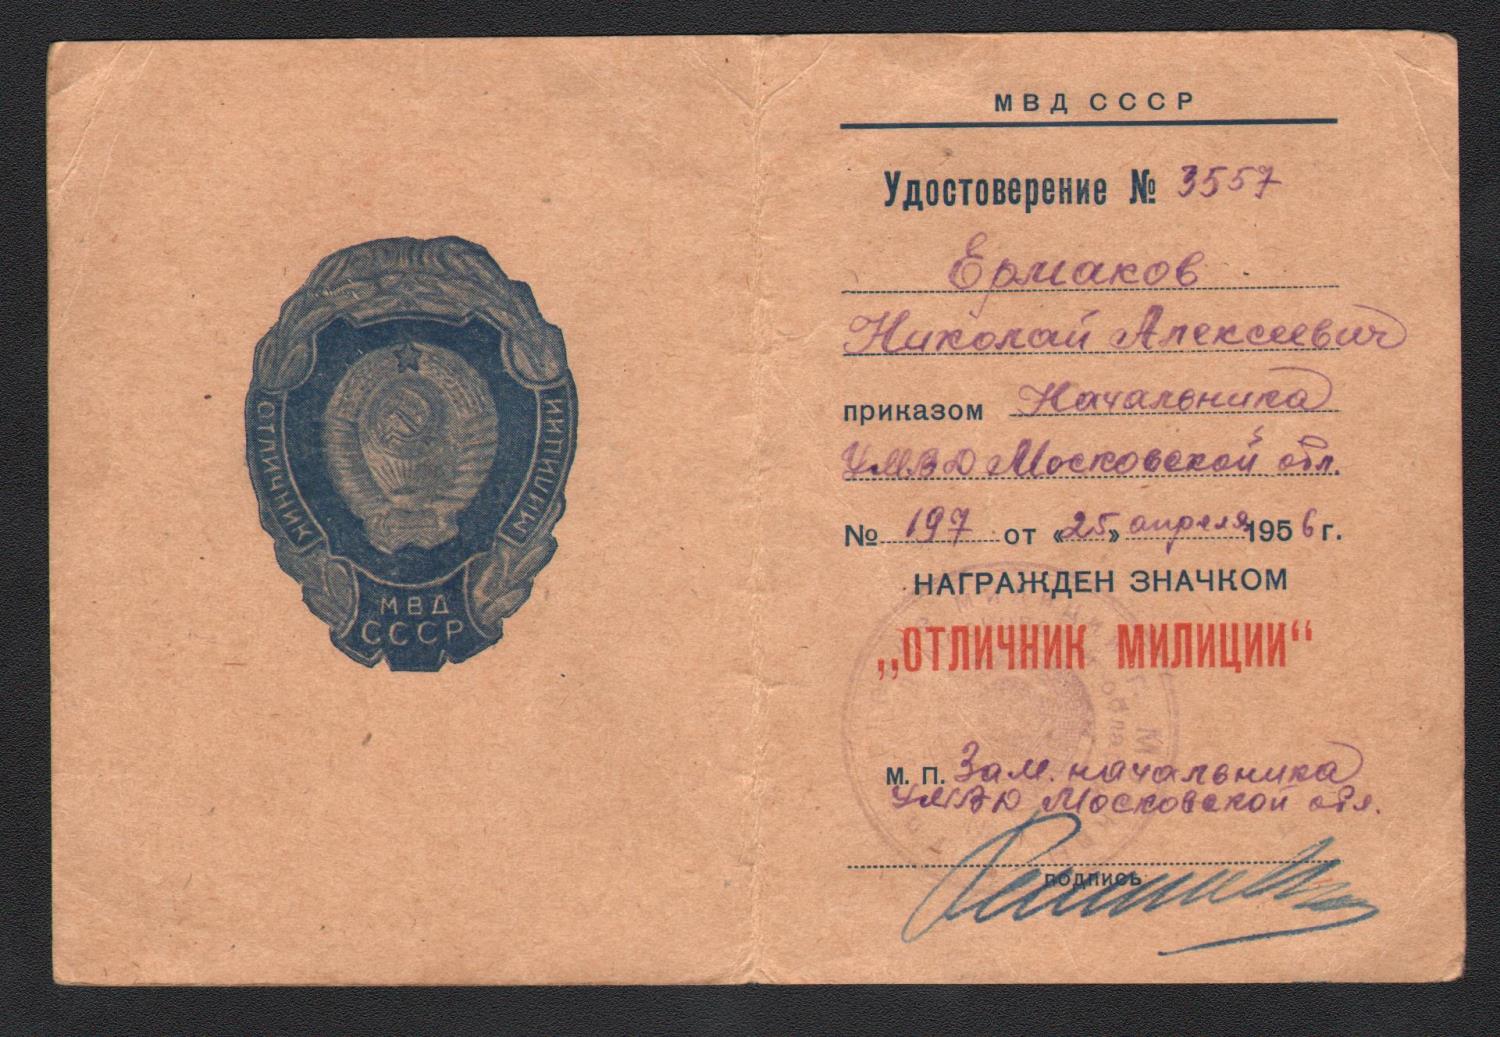 ОТЛИЧНИК
МИЛИЦИИ
МВД
СССР
МВД СССР
Удостоверение № 3557
Ермаков
Николай Алексеевич
приказом Начальника
УМВД Московской обл.
№ 197 от «25» апреля 1956 г.
НАГРАЖДЕН ЗНАЧКОМ
„ОТЛИЧНИК МИЛИЦИИ“
М. П. Зам. начальника
УМВД Московской обл.
подпись